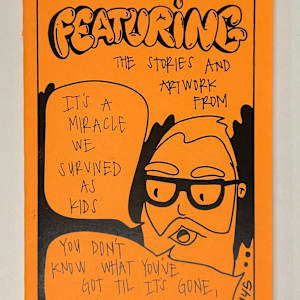 FEATURING
THE STORIES AND
ARTWORK
FROM
IT'S A
MIRACLE
WE
SURVIVED
AS
KIDS
YOU DON'T
KNOW WHAT YOU'VE
GOT TIL IT'S GONE,